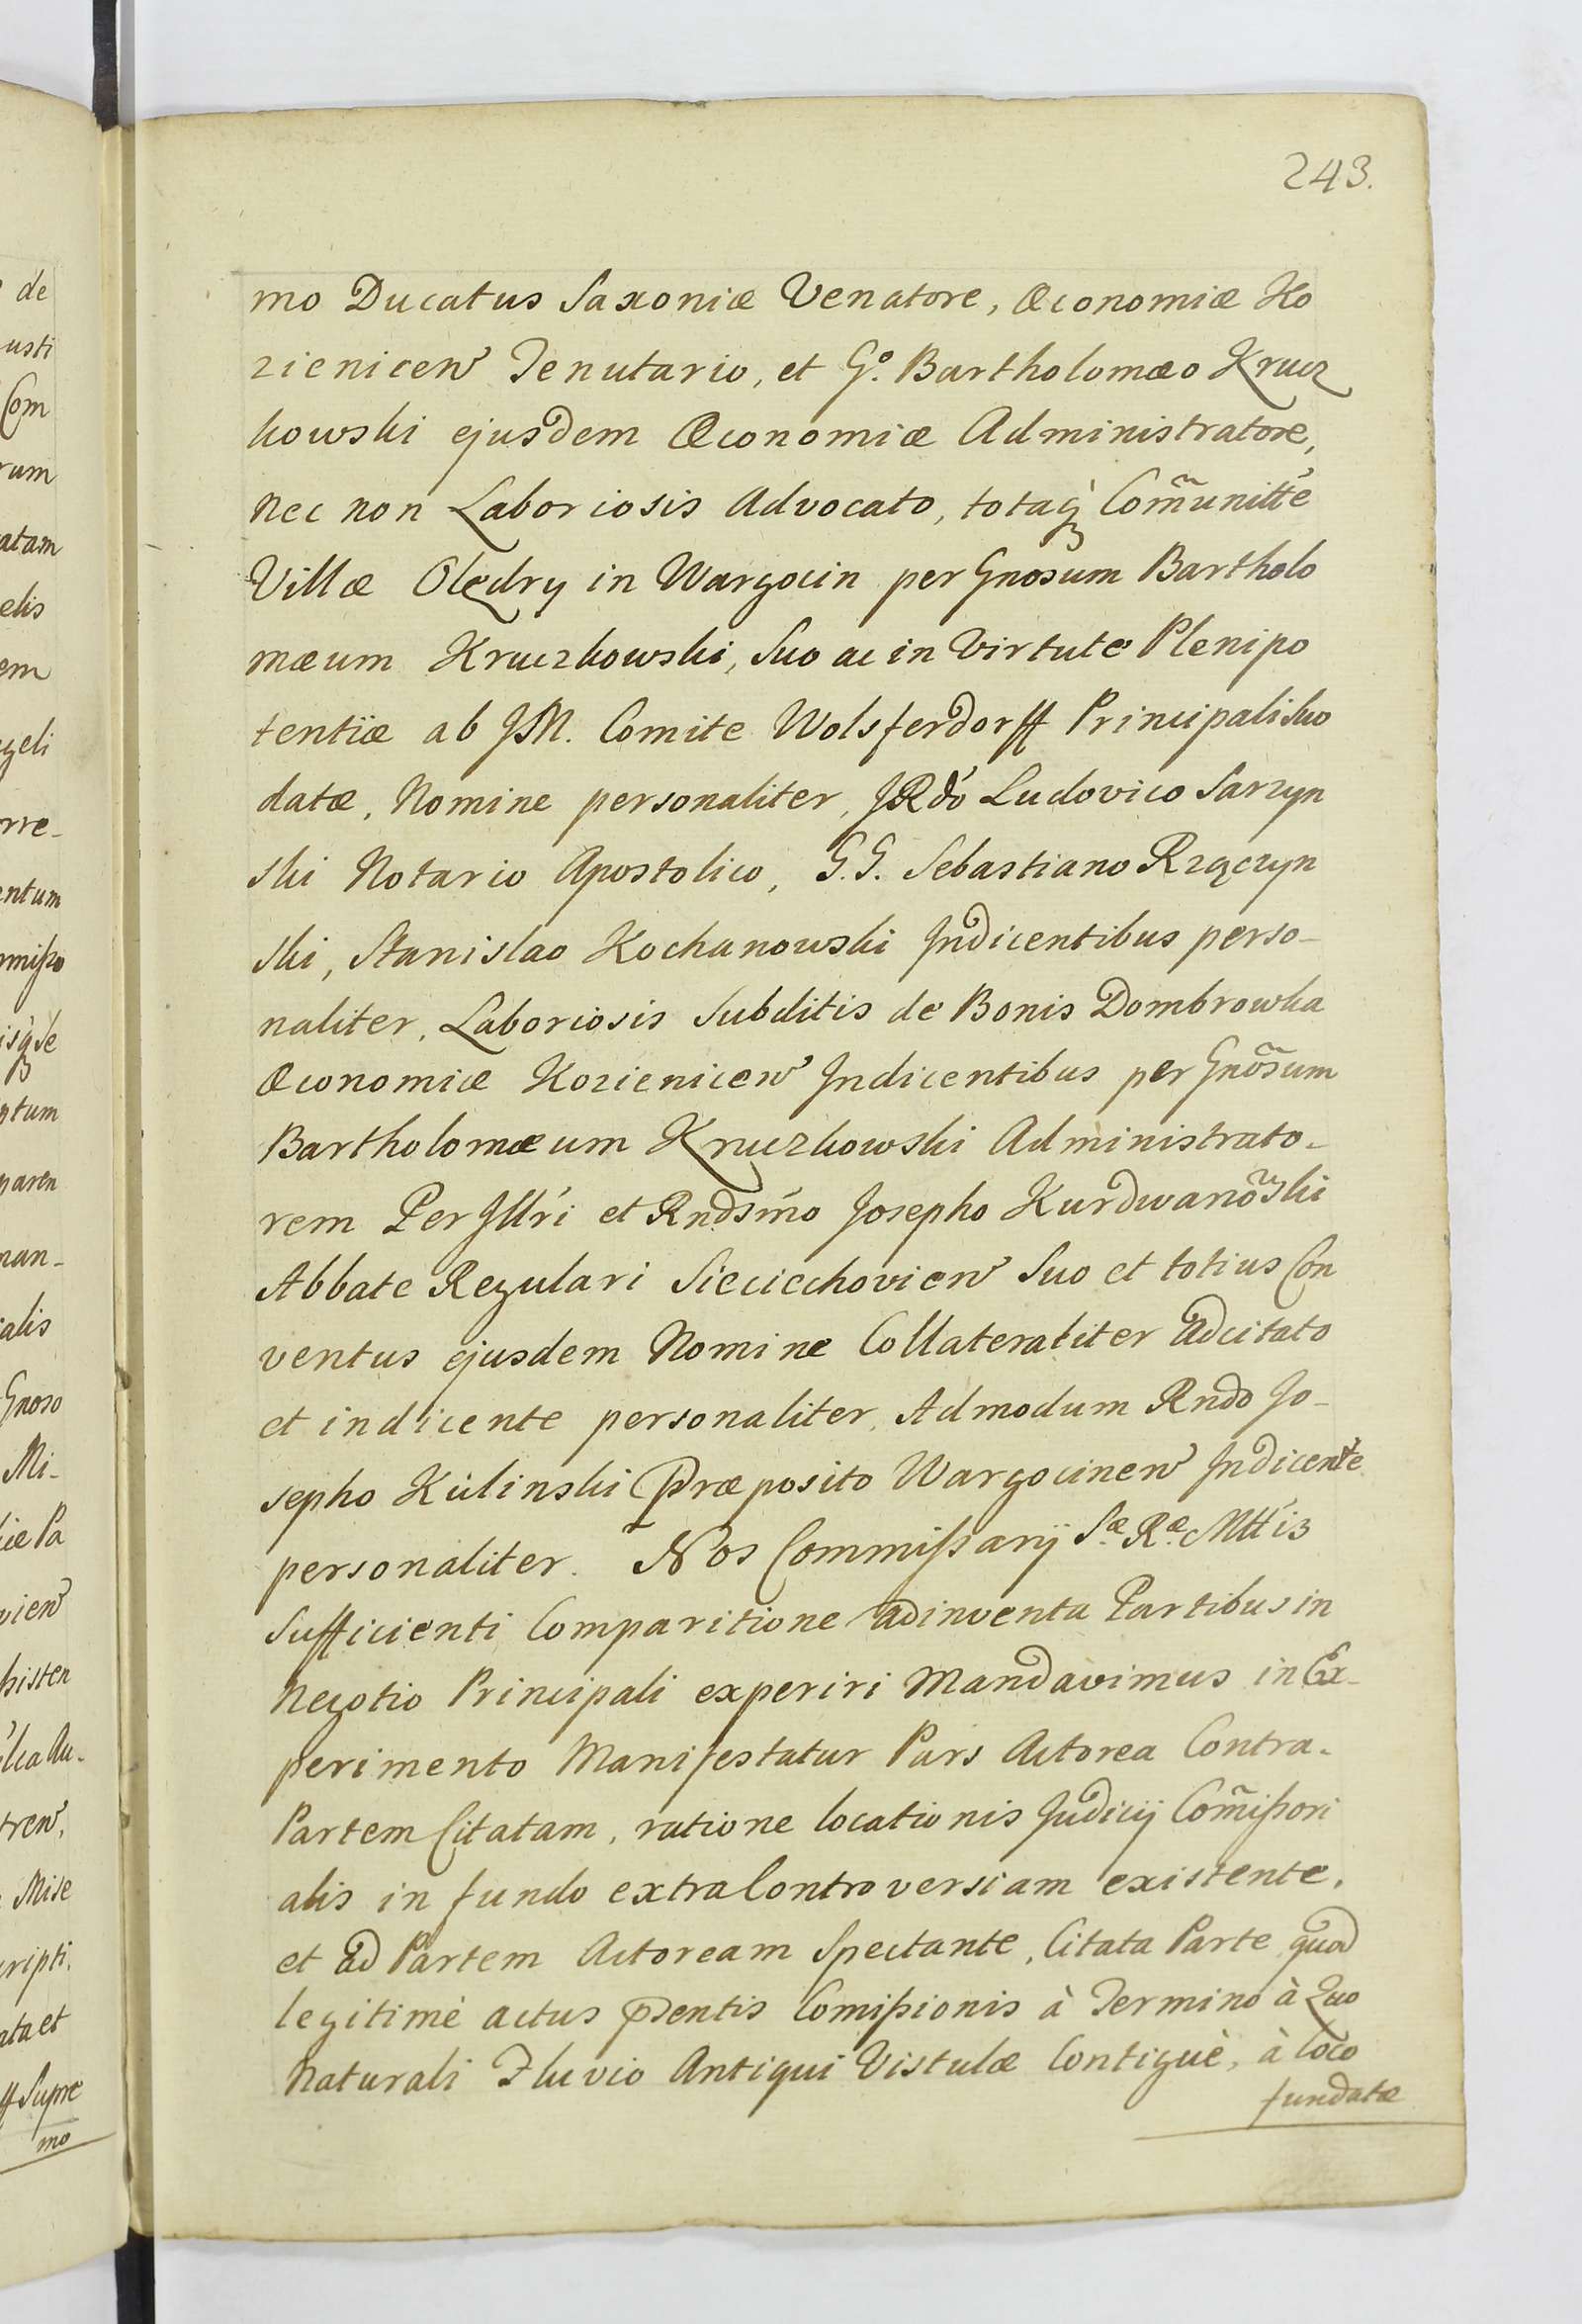 243.
mo Ducatus Saxoniæ Venatore, Œconomiæ Ko
zienicen Tenutario, et G.º Bartholomæo Krucz
kowski ejusdem Œconomiæ Administratore,
nec non Laboriosis Advocato, totaq Com̃unitte
Villæ Olędry in Wargocin per Gnosum Bartholo
mæum Kruczkowski, Suo ac in Virtute Plenipo
tentiæ ab JM. Comite Wolsferdorff Principali Suo
datæ, Nomine personaliter, JRdo Ludovico Sarzyn
ski Notario Apostolico, G.G. Sebastiano Rzączyn
ski, Stanislao Kochanowski Indicentibus perso-
naliter, Laboriosis Subditis de Bonis Dombrowka
Œconomiæ Kozienicen Indicentibus per Gnõsum
Bartholomæum Kruczkowski Administrato-
rem Per Jllri et Rndsmo Josepho Kurdwanõski
Abbate Regulari Sieciechovien Suo et totius Con
ventus ejusdem Nomine Collateraliter adcitato
et indicente personaliter, Admodum Rndo Jo-
sepho Kulinski Præposito Wargocinen Indicente
personaliter. Nos Commissarij S.æ R.æ Mttis
Sufficienti Comparitione adinventa Partibus in
Negotio Principali experiri Mandavimus in Ex-
perimento Manifestatur Pars Actorea Contra-
Partem Citatam, ratione locationis Judicij Com̃issori
alis in fundo extra Controversiam existente,
et ad Partem Actoream Spectante, Citata Parte quod
legitimè actus psentis Comissionis à Termino à Quo
Naturali Fluvio Antiqui Vistulæ Contiguè, à loco
fundatæ
de
usti
Com
rum
atam
elis
em
geli
rre-
entum
ptum
paren
nan-
alis
Gnoso
Mi-
iæ Pa
vien
sisten
lica Au-
tren,
Mise
cripti,
ata et
ff Supre
mo